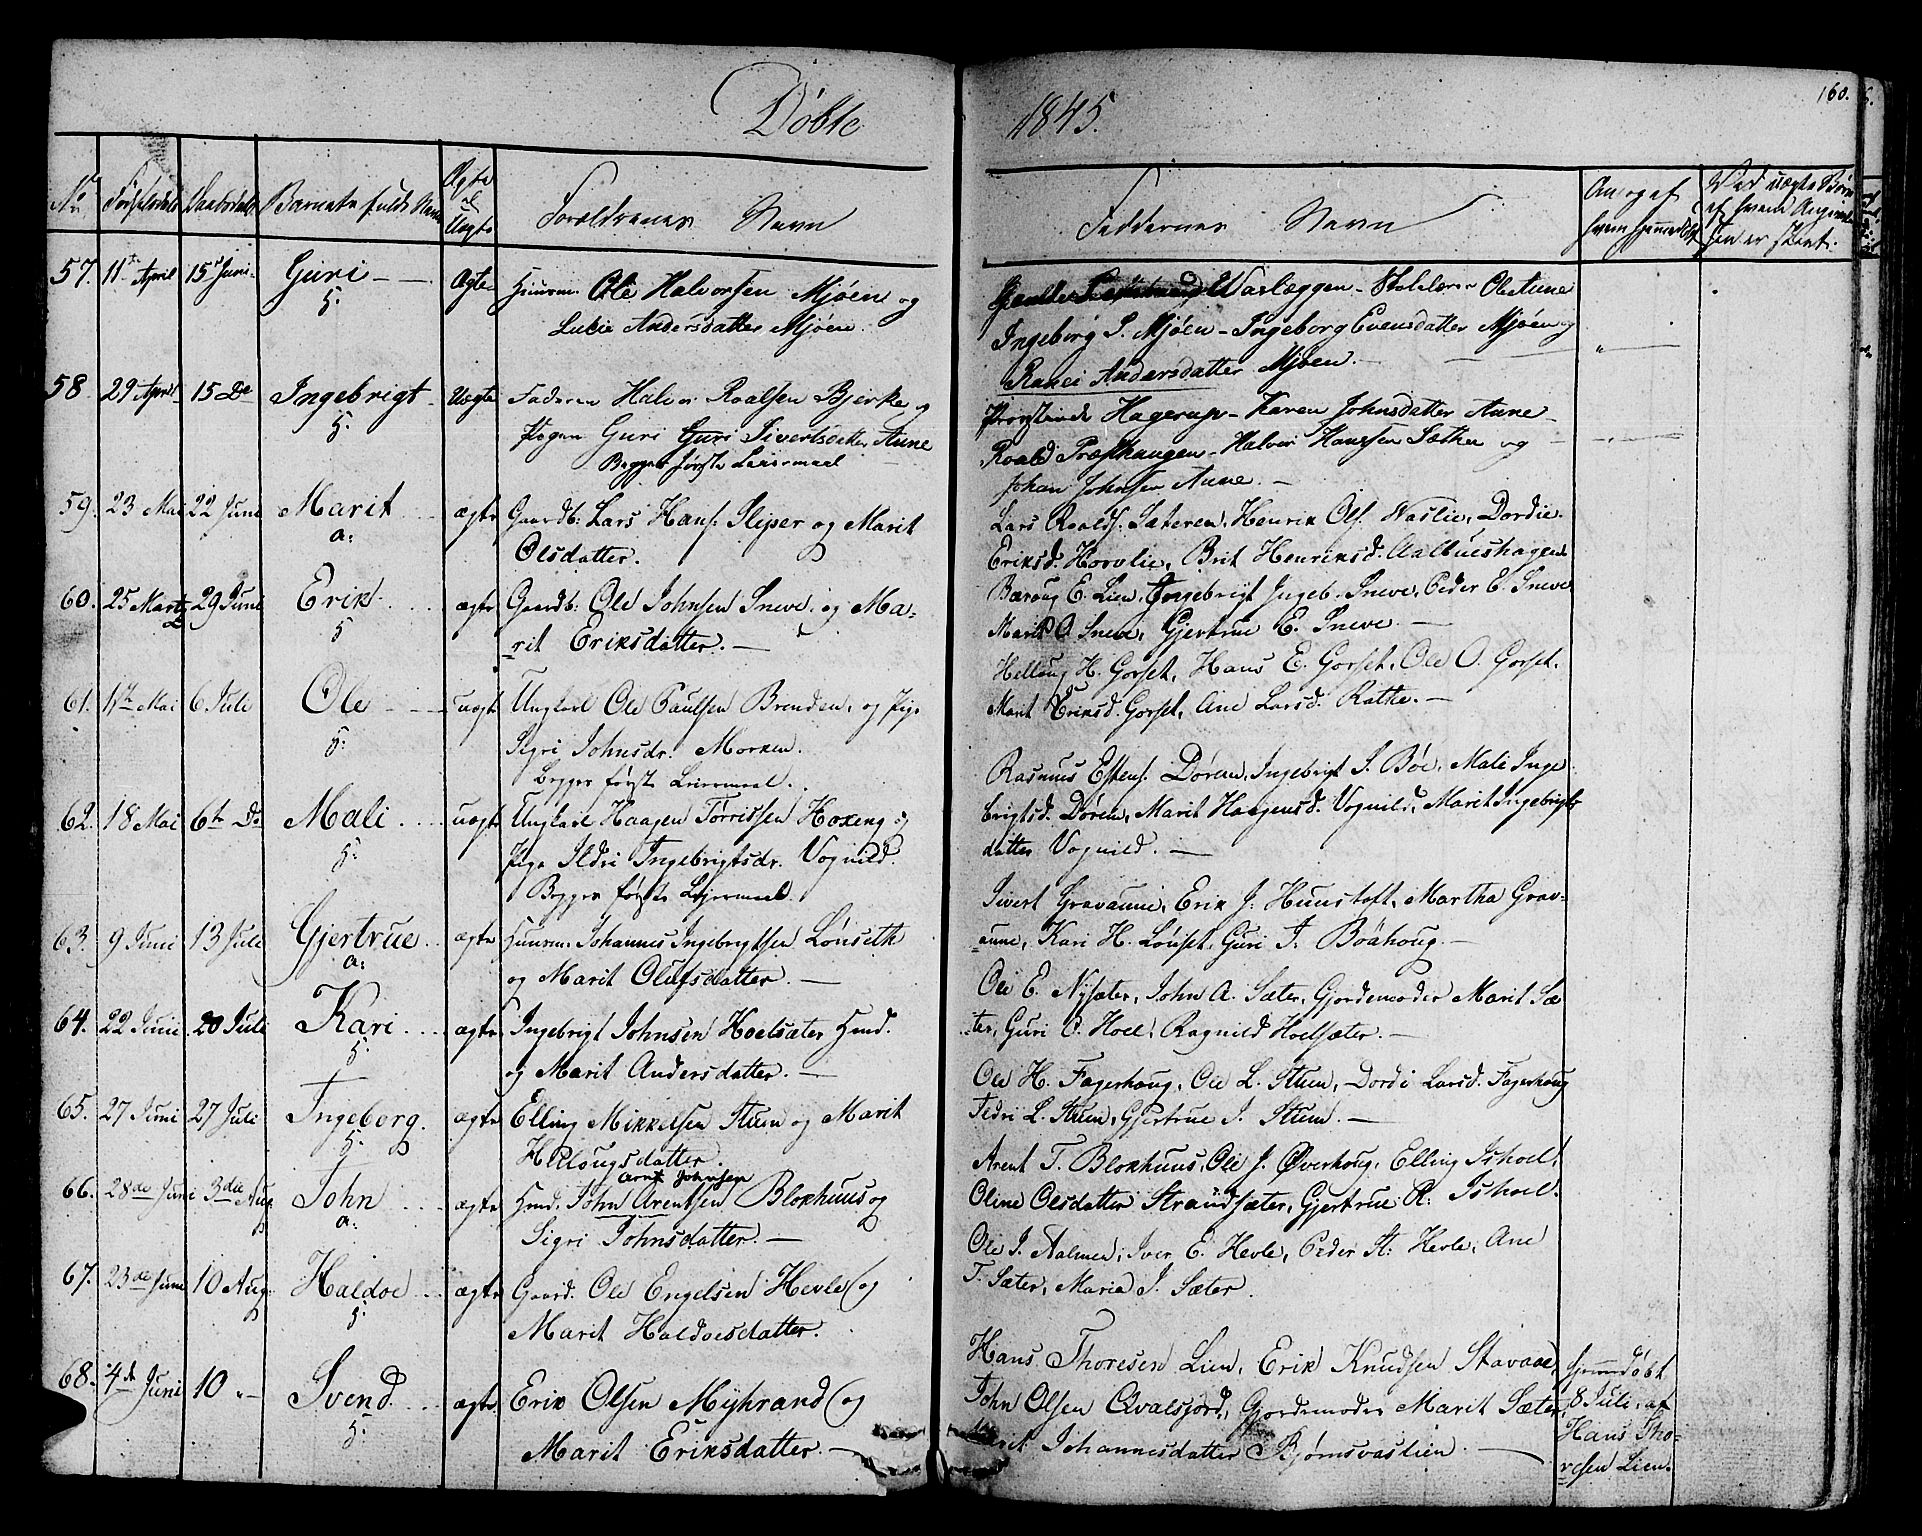 Døbte
1845.
160.
No
Fødselsdato
Daabsdato
Barnets fulde Navn
Ægte el. Uægte
Forældrenes Navn
Faddernes Navn
Om og af hvem hjemmedøbt
Ved uægte Børn af hvem Angivelsen er skeet.
57. 11te April 15de Juni Guri Ægte Huusm. Ole Halvorsen Mjøen og
5.
Lucie Andersdatter Mjøen.
Warlæggen - Skolelærer Ole Aune
Ingeborg S. Mjøen - Ingeborg Evensdatter Mjøen og
Ranei Andersdatter Mjøen.
58. 29 April 15 De Ingebrigt Uægte Faderen Halvor Roalsen Bjerke og
5.
Pigen Guri Guri Sivertsdatter Aune
Begges første Leiermaal
Provstinde Hagerup - Karen Johnsdatter Aune
Roald Præsthaugen - Halvor Hanssen Sæther og
Johan Johnsen Aune.
59. 23 Mai 22 Juni Marit ægte Gaardb: Lars Hans. Sliper og Marit
a:
Olsdatter.
Lars Roalds. Sæteren, Henrik Ols. Waslie, Dordie
Eriksd. Horvlie, Brit Henriksd. Aalbueshagen
60. 25 Marts 29 Juni Erik ægte Gaardb: Ole Johnsen Sneve, og Ma-
5
rit Eriksdatter.
Baroug E. Lien, Ingebrigt Ingeb. Sneve, Peder E. Sneve
Marit O. Sneve, Gjertrue E. Sneve.
61. 1ste Mai 6 Juli Ole uægte Ungkarl Ole Paulsen Brenden, og Pige
5:
Sigri Johnsdr. Morken.
Begges første Leiermaal.
Helloug H. Gorset, Hans E. Gorset, Ole O. Gorset,
Marit Eriksd. Gorset, Ane Larsd. Rathe.
62. 18 Mai 6te Do Mali uægte Ungkarl Haagen Tørrissen Hoxeng og
5:
Pige Ildri Ingebrigtsdr. Vognild.
Begges første Leiermaal.
Rasmus Estens. Døren, Ingebrigt S. Böe, Mali Inge
brigtsd. Døren, Marit Haagensd. Vognild, Marit Ingebrigts
datter Vognild.
63. 9 Juni 13 Juli Gjertrue ægte Huusm. Johannes Ingebrigtsen Lönseth
a:
og Marit Olufsdatter.
Sivert Gravaune, Erik J: Huustoft, Martha Grav-
aune, Kari H. Lönset, Guri J. Böahoug.
64. 22 Juni 20 Juli Kari ægte Ingebrigt Johnsen Hoelsæter Hmd.
5:
og Marit Andersdatter.
Ole E. Nysæter, John A. Sæter, Gjordemoder Marit Sæ
ter, Guri O. Hoel, Ragnild Hoelsæter.
65. 27 Juni 27 Juli Ingeborg. ægte Elling Mikkelsen Stuen og Marit
5:
Helougsdatter.
Ole H. Fagerhoug, Ole L. Stuen, Dordi Larsd. Fagerhoug
Ildri L. Stuen, Gjertrue I. Stuen.
66. 28de Juni 3die Aug. John ægte Hmd. John Arentsen Blokhuus og
a:
Arnt Johnsen
Sigri Johnsdatter.
Arent T. Blokhuus, Ole J. Øverhoug, Elling Ishoel,
Oline Olsdatter Strandsæter, Gjertrue R: Ishoel.
67. 23de Juni 10 Aug. Haldoe ægte Gaard. Ole Engelsen Hevle og
5:
Marit Haldoesdatter.
Ole J. Aalmen, Iver E. Hevle, Peder St. Hevle, Ane
T. Sæter, Maria J. Sæter.
68. 4de Juni 10 "- Svend ægte Erik Olsen Myhrand og
5:
Marit Eriksdatter.
Hans Thoresen Lien, Erik Knudsen Stavaae,
John Olsen Qvalsjord, Gjordemoder Marit Sæter,
Marit Johannesdatter Bjørnsvaslien
hjemmedøbt
8 Juli, af
Hans Tho-
resen Lien.